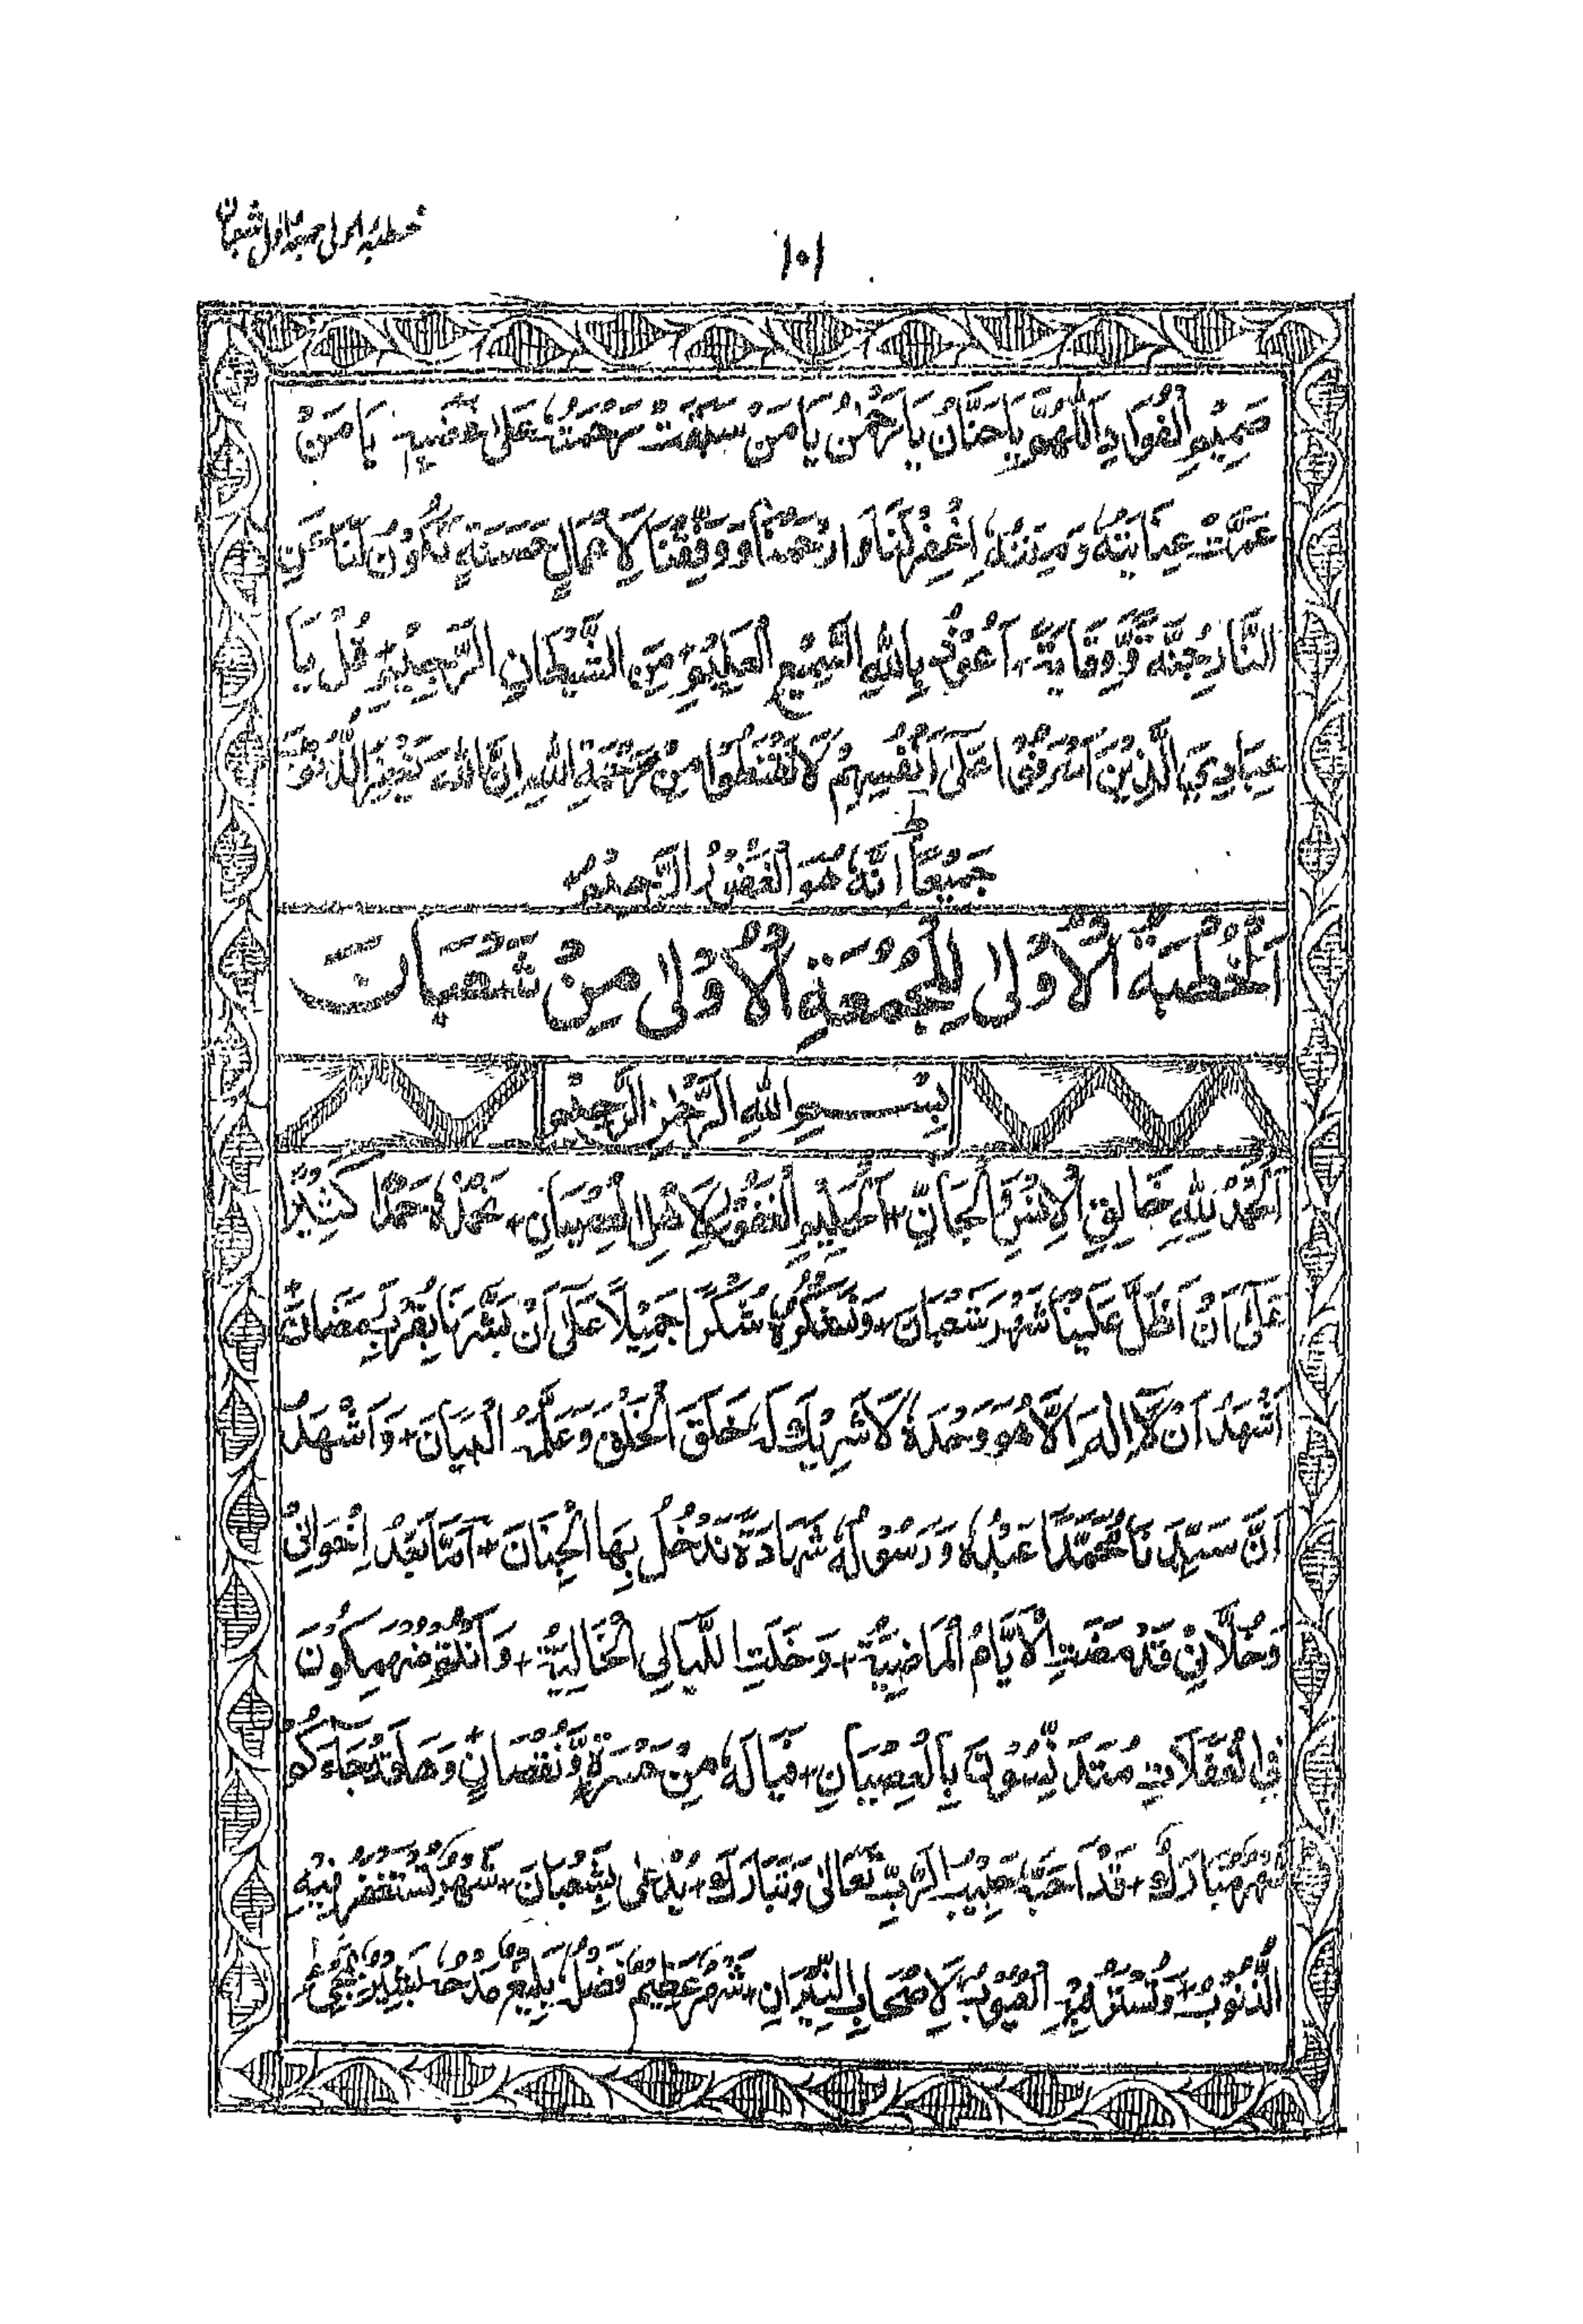 خطبۂ اولی جمعۂ اول شعبان
۱۰۱
صَمِيْمِ الْفُوَادِ اَللّٰهُمَّ يَا حَنَّانُ يَا رَحْمٰنُ يَا مَنْ سَبَقَتْ رَحْمَتُهٗ عَلٰى غَضَبِهٖ يَا مَنْ
عَمَّتْ عِنَايَتُهٗ وَمِنَّتُهٗ اِغْفِرْ لَنَا وَارْحَمْنَا وَوَفِّقْنَا لِاَعْمَالٍ حَسَنَةٍ تَكُوْنُ لَنَا عَنِ
النَّارِ جُنَّةً وَّوِقَايَةً + اَعُوْذُ بِاللّٰهِ السَّمِيْعِ الْعَلِيْمِ + مِنَ الشَّيْطَانِ الرَّجِيْمِ + قُلْ يَا
عِبَادِيَ الَّذِيْنَ اَسْرَفُوْا عَلٰى اَنْفُسِهِمْ لَا تَقْنَطُوْا مِنْ رَّحْمَةِ اللّٰهِ اِنَّ اللّٰهَ يَغْفِرُ الذُّنُوْبَ
جَمِيْعًا ط اِنَّهٗ هُوَ الْغَفُوْرُ الرَّحِيْمُ
اَلْخُطْبَةُ الْاُوْلٰى لِلْجُمُعَةِ الْاُوْلٰى مِنْ شَعْبَانَ
بِسْمِ اللّٰهِ الرَّحْمٰنِ الرَّحِيْمِ
اَلْحَمْدُ لِلّٰهِ خَالِقِ الْاِنْسِ وَالْجَانِّ + اَلْحَلِيْمِ الْغَفُوْرِ لِاَهْلِ الْعِصْيَانِ + نَحْمَدُهٗ حَمْدًا كَثِيْرًا
عَلٰى اَنْ اَظَلَّ عَلَيْنَا شَهْرَ شَعْبَانَ + وَنَشْكُرُهٗ شُكْرًا جَمِيْلًا عَلٰى اَنْ بَشَّرَنَا بِقُرْبِ رَمَضَانَ +
اَشْهَدُ اَنْ لَّا اِلٰهَ اِلَّا هُوَ وَحْدَهٗ لَا شَرِيْكَ لَهٗ خَلَقَ الْخَلْقَ وَعَلَّمَهُ الْبَيَانَ + وَاَشْهَدُ
اَنَّ سَيِّدَنَا مُحَمَّدًا عَبْدُهٗ وَرَسُوْلُهٗ شَهَادَةً نَدْخُلُ بِهَا الْجِنَانَ + اَمَّا بَعْدُ اِخْوَانِيْ
وَخُلَّانِيْ قَدْ مَضَتِ الْاَيَّامُ الْمَاضِيَةُ + وَخَلَتِ اللَّيَالِي الْخَالِيَةُ + وَاَنْتُمْ مُنْهَمِكُوْنَ
فِي الْغَفَلَاتِ مُتَدَنِّسُوْنَ بِالْعِصْيَانِ + فَيَا لَهٗ مِنْ حَسْرَةٍ وَّنُقْصَانٍ وَهَا قَدْ جَاءَكُمْ
شَهْرٌ مُّبَارَكٌ + قَدْ اَحَبَّهٗ حَبِيْبُ الرَّبِّ تَعَالٰى وَتَبَارَكَ + يُدْعٰى بِشَعْبَانَ + شَهْرٌ تُسْتَغْفَرُ فِيْهِ
الذُّنُوْبُ + وَتُسْتَرُ فِيْهِ الْعُيُوْبُ لِاَصْحَابِ النِّيْرَانِ + شَهْرٌ عَظِيْمٌ فَضْلُهٗ بَلِيْغٌ مَدْحُهٗ